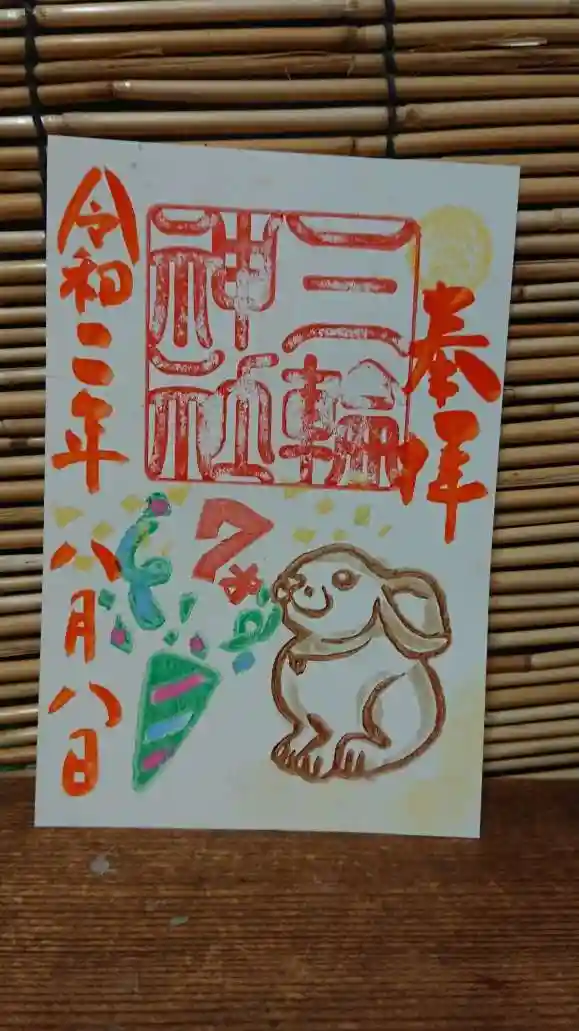 奉拝
三輪
神社
7*
令和二年八月八日